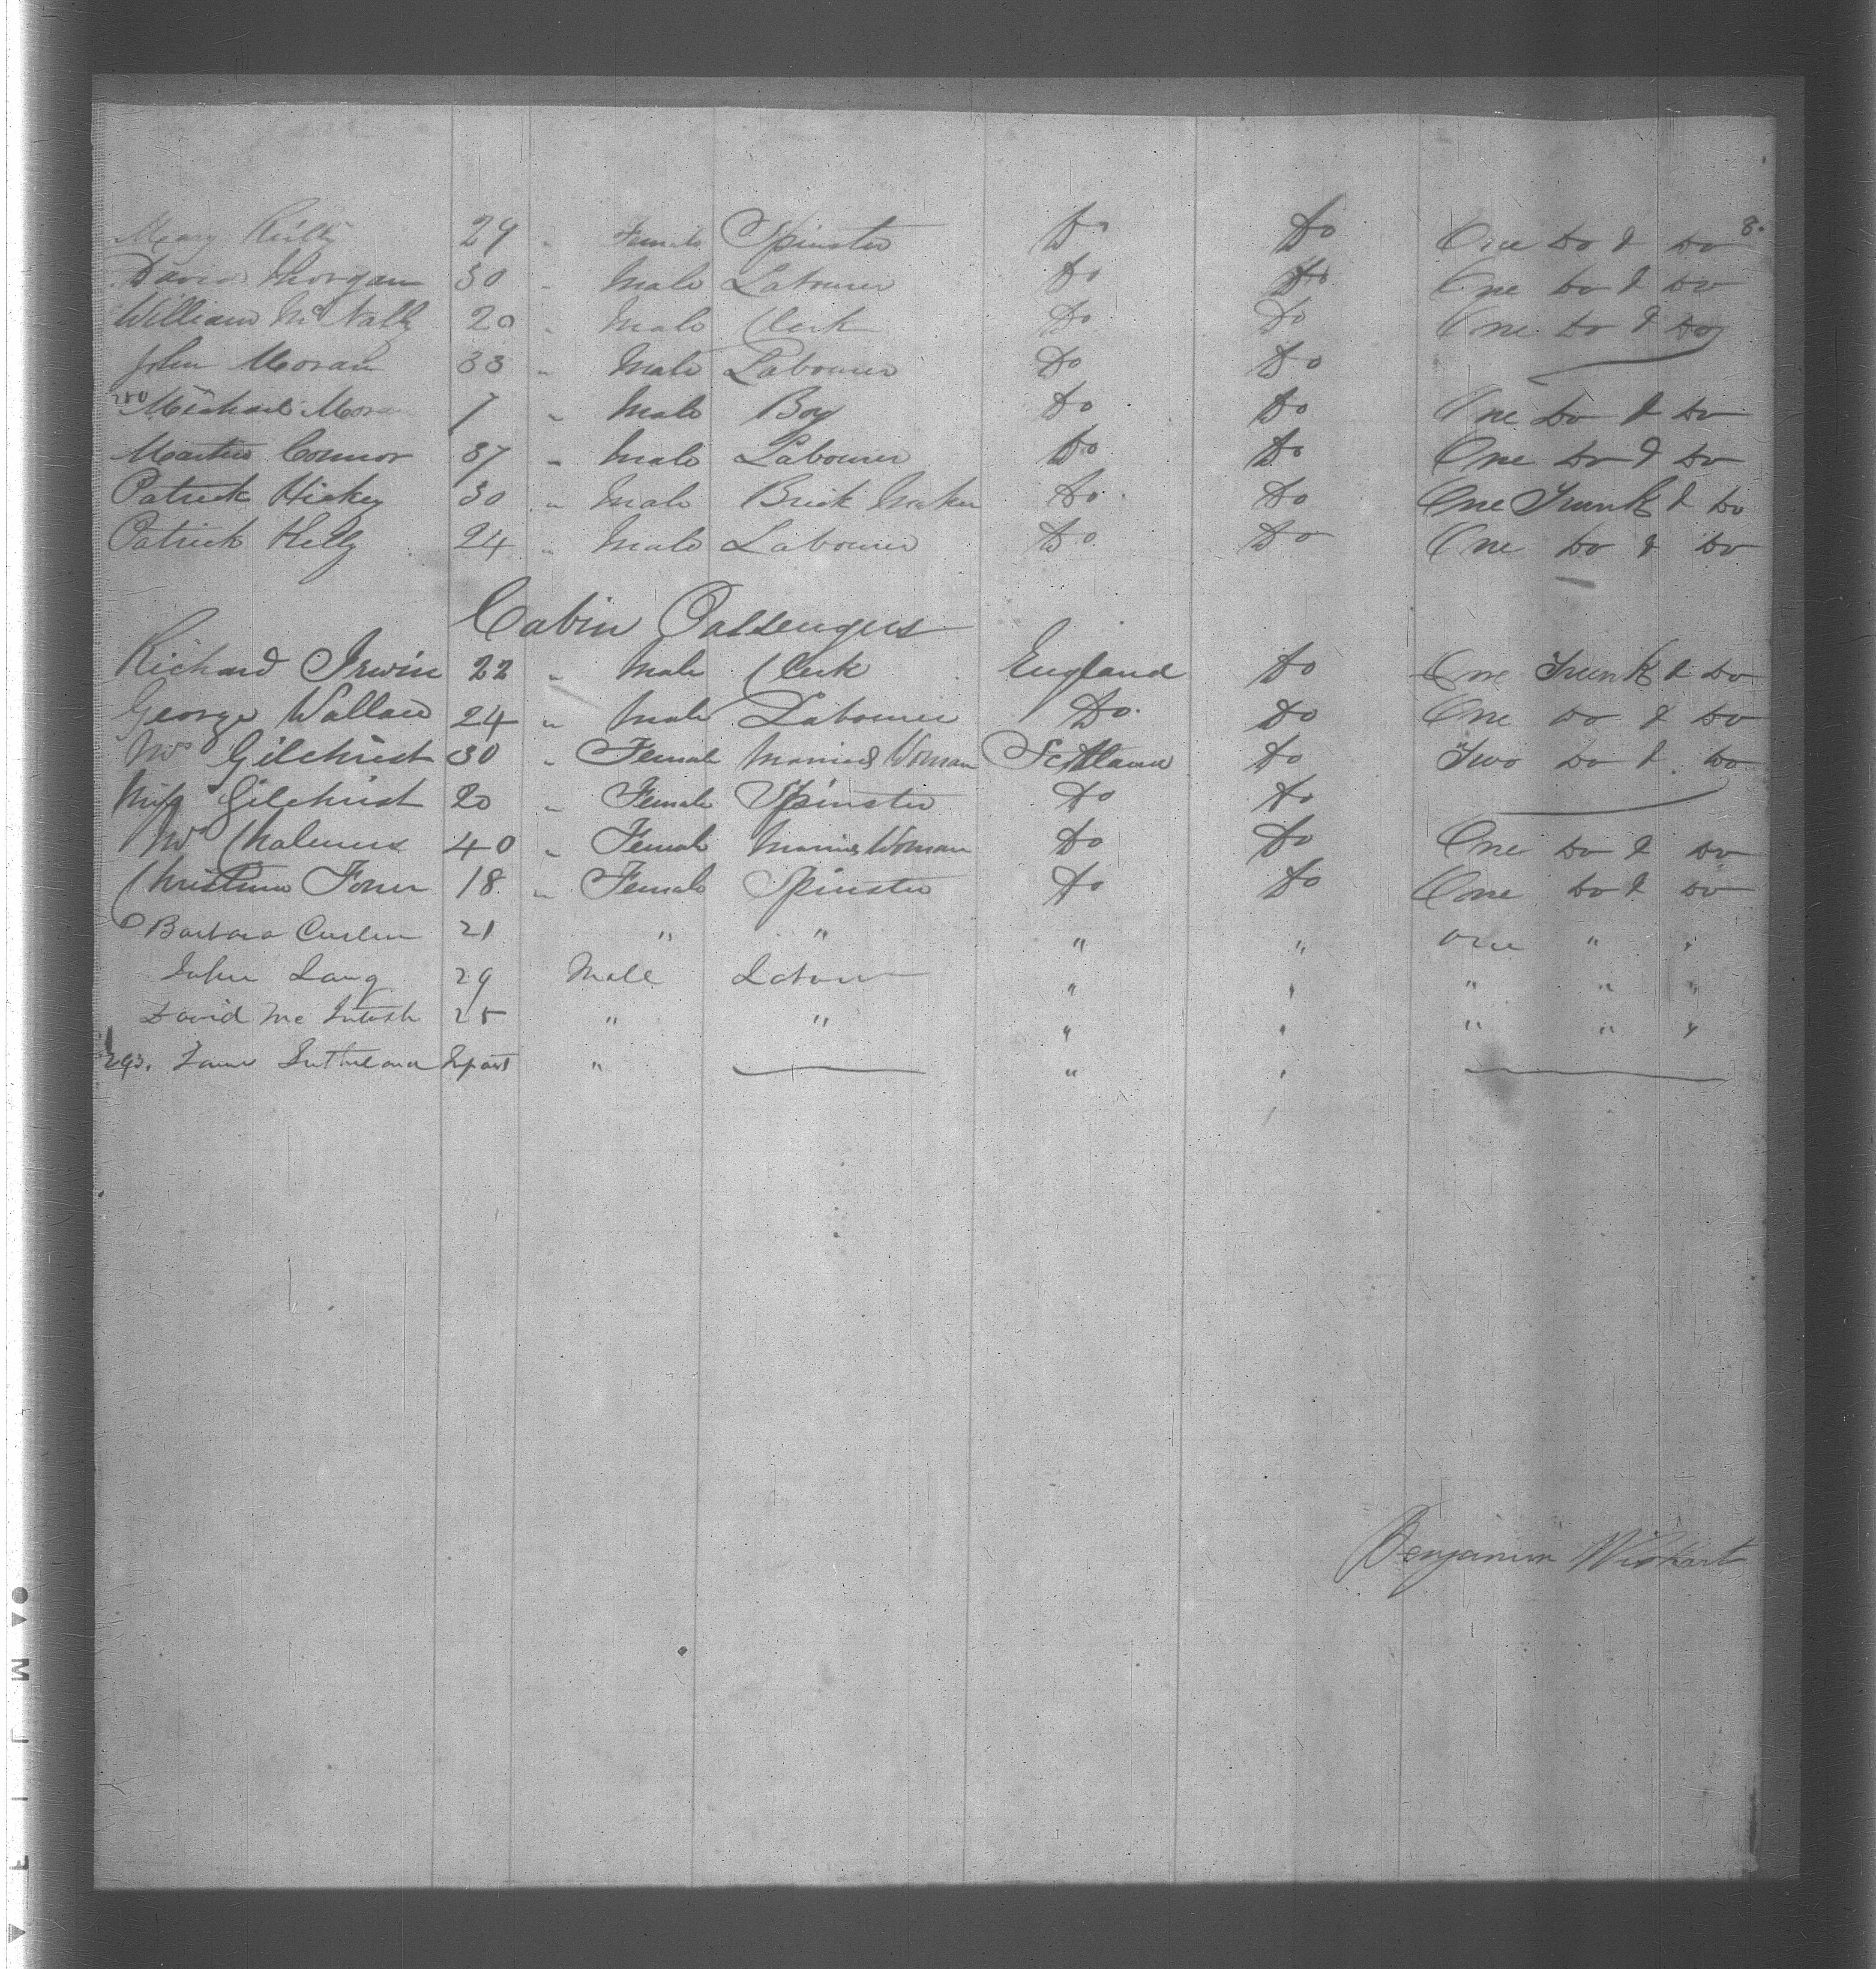 8.
Mary Reilly 29 " Female Spinster Do Do One Do & Do
David Morgan 30 " Male Labourer Do Do One Do & Do
William McNally 20 " Male Clerk Do Do One Do & Do
John Moran 33 " Male Labourer Do Do
280 Michael Moran 7 " Male Boy Do Do One Do & Do
Martin Connor 37 " Male Labourer Do Do One Do & Do
Patrick Hickey 30 " Male Brick Maker Do Do One Trunk & Do
Patrick Kelly 24 " Male Labourer Do Do One Do & Do
Cabin Passengers
Richard Irwin 22 " Male Clerk England Do One Trunk & Do
George Wallace 24 " Male Labourer Do Do One Do & Do
Mrs Gilchrist 30 " Female Married Woman Scotland Do Two Do & Do
Miss Gilchrist 20 " Female Spinster Do Do
Mrs Chalmers 40 " Female Married Woman Do Do One Do & Do
Christina 18 " Female Spinster Do Do One Do & Do
Barbara 21 " " " " One " "
John Lang 29 Male Labour " " " " "
David McIntosh 25 " " " " " " "
293. Sutherland Infant " " "
Benjamin Wishart